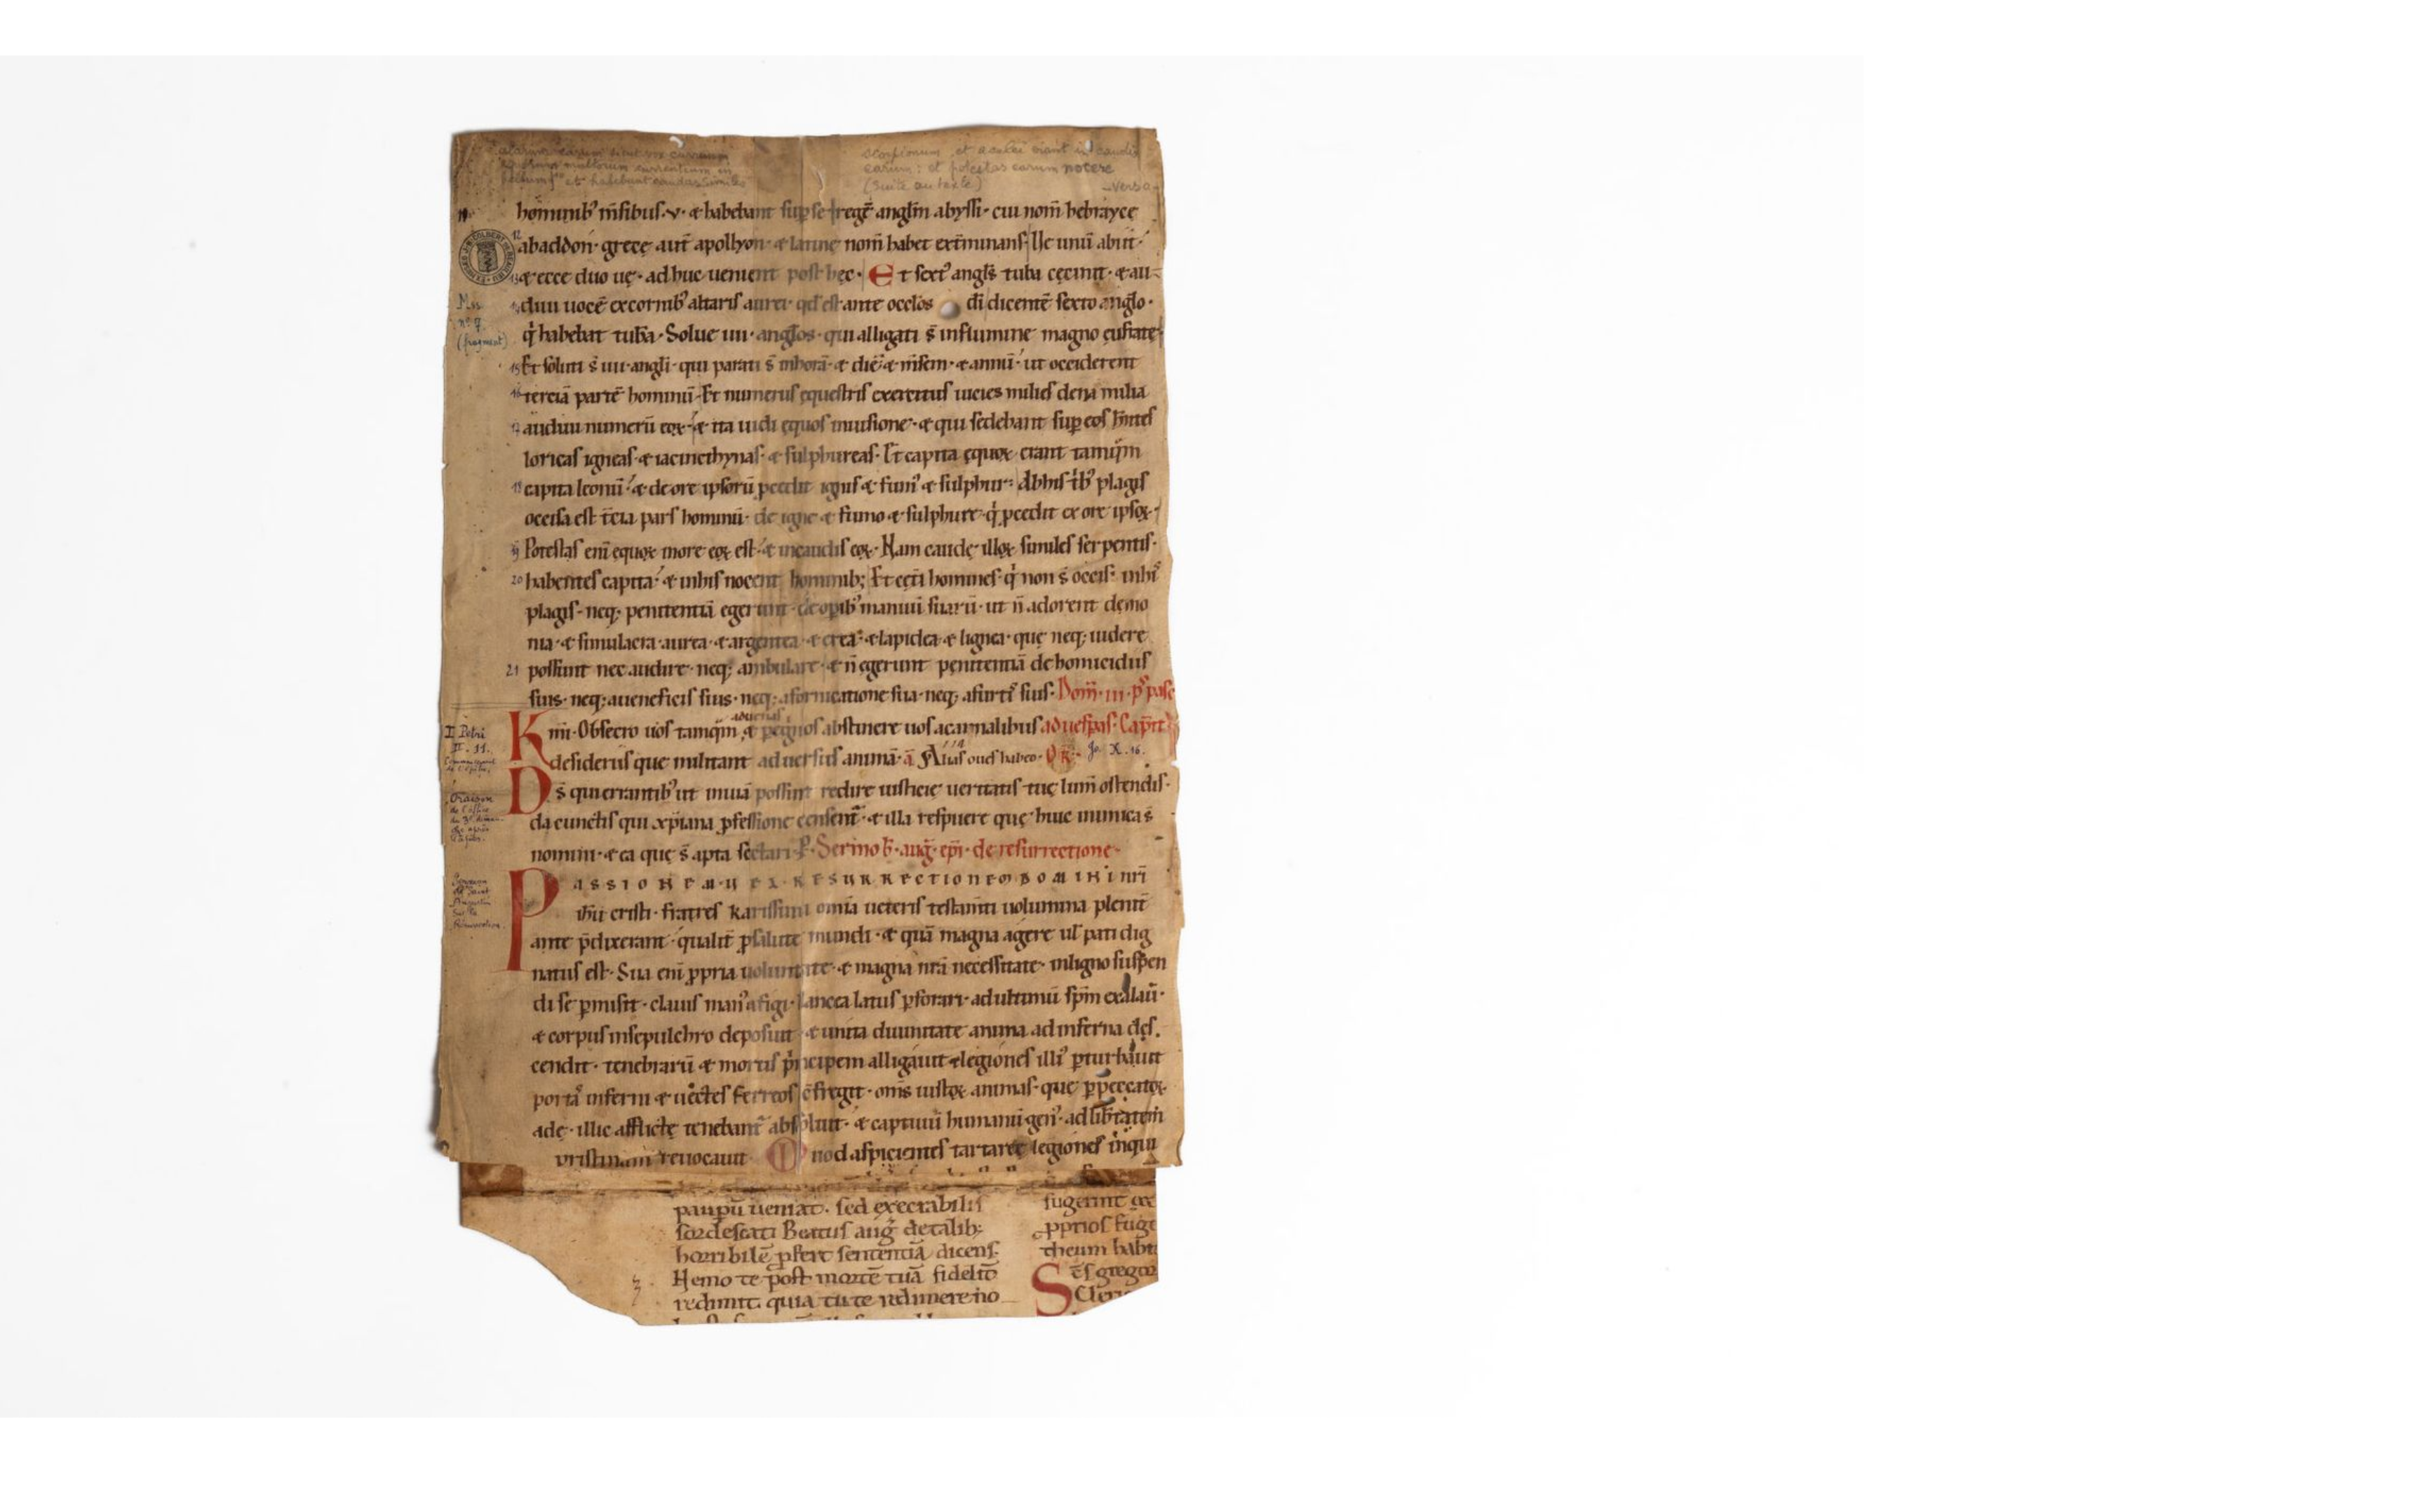 alarum earum sicut vox curruum
equorum multorum currentium in
bellum, 10 et habebant caudas similes
scorpionum, et aculei erant in caudis
earum: et potestas earum nocere
(suite au texte)
-Versa-
hominib' m̄sibus·v· & habebant sup se regē angl̄m abyssi· cui nom̄ hebrayce
12 abaddon· grecę aut̄ apolhyon· & latinę nom̄ habet ext̄minans· Vę unū abiit·
13 & ecce duo uę· adhuc ueniunt post hęc· Et sext' angl̄s tuba cęcinit· & au-
14 diui uocē excornib' altaris aurei· qd̄ est ante oculos d̄i dicentē sexto anglo·
q̇ habebat tubā· Solue IIII· anglos· qui alligati s̄ influmine magno eufrate·
15 Et soluti s̄ IIII· angli· qui parati s̄ inhorā· & diē· & m̄sem· & annū· ut occiderent
16 terciā partē hominū· Et numerus equestris exercitus uicies milies dena milia
17 audiui numerū eoꝝ· & ita uidi equos inuisione· & qui sedebant sup eos h̄ntes
loricas igneas· & iacincthynas· & sulphureas· Et capita equoꝝ erant tamq̄m
18 capita leonū· & de ore ipsorū pcedit ignis & fum' & sulphur: Abhis t̄b' plagis
occisa est t̄cia pars hominū· de igne & fumo & sulphure· q̇ pcedit ex ore ipsoꝝ·
19 Potestas eni equoꝝ inore eoꝝ est· & incaudis eoꝝ· Nam caudę illoꝝ similes serpentis·
20 habentes capita· & inhis nocent hominib; Et cęt̄i homines· q̇ non s̄ occisi inhis
plagis· neq; penitentiā egerunt· de opib' manuū suarū· ut n̄ adorent dęmo
nia· & simulacra· aurea· & argentea· & erea· & lapidea· & lignea· quę neq; uidere
21 possunt nec audire· neq; ambulare· & n̄ egerunt penitentiā de homicidiis
suis· neq; aueneficiis suis· neq; afornicatione sua· neq; afurtis suis· Dom̄· III· p' pasc
Kmi· Obsecro uos tamq̄m aduenas & pegnos abstinere uos acarnalibus aduesp̄as· Capit̄
desideriis que militant aduersus animā· a Alias oues habeo· Or̄· Jo. X. 16.
Ds̄ qui errantib' ut inuiā possint redire iusticię ueritatis tuę lum̄ ostendis·
da cunctis qui xp̄iana pfessione censent̄· & illa respuere quę huic inimica s̄
nomini· & ea quę s̄ apta sectari· P· Sermo b· aug̃· epi· de resurrectione·
PASSIONEM UEL RESURRECTIONEM DOMINI nr̄i
ih̄u cristi· fratres karissimi omia ueteris testam̄ti uolumina plenit̄
ante p̄dixerant· qualit̄ p salute mundi· & quā magna agere ul' pati dig
natus est· Sua eni ppria uoluntate· & magna nr̄a necessitate· inligno suspen
di se pmisit· clauis man' afigi· lancea latus pforari· ad ultimū sp̄m exalau̇·
& corpus insepulchro deposuit· & unita diuinitate anima ad inferna des.
cendit· tenebrarū & mortis p̄ncipem alligauit & legiones illi' pturbauit
porta' inferni & uectes ferreos c̄fregit· om̄s iustoꝝ animas· que p peccatoꝝ·
adę· illic afflictę tenebant̄ absoluit· & captiuū humanū gen'· ad libtatem
pristinam reuocauit Quod aspicientes tartaree legiones inqui
Mss
nº 9
(fragment)
I Petri
II. 11.
Oraison
de l'office
du 3e diman-
che après
Pâques.
Sermon
de Saint
Augustin
sur la
Résurrection.
paupū ueniat· sed execrabilis
sordescat; Beatus aug̃ detalib;
horribilē pfert sententiā dicens·
Nemo te post mortē tuā fidelit̄
redimit· quia tu te redimere no
sugerint
pprios fuge
theum habu
Scs̄ gregor
Cleri